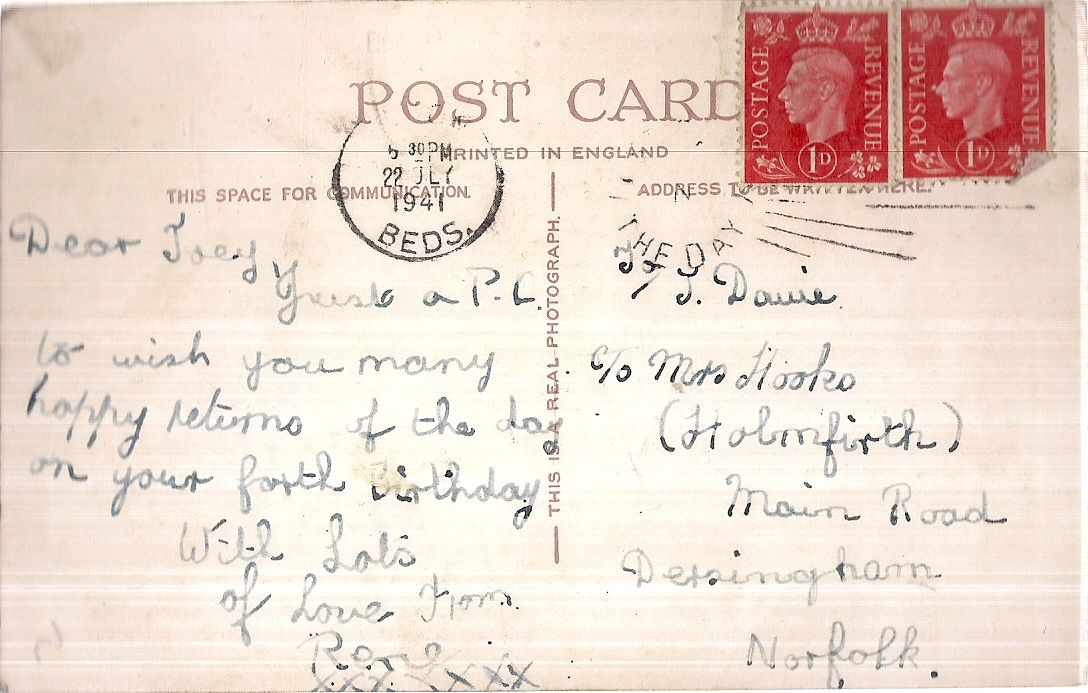 POST CARD
PRINTED IN ENGLAND
THIS SPACE FOR COMMUNICATION.
ADDRESS TO BE WRITTEN HERE.
THIS IS A REAL PHOTOGRAPH.
POSTAGE REVENUE 1D
POSTAGE REVENUE 1D
30PM
22 JLY
1941
BEDS.
THE DAY
Dear Joey,
Just a P.C.
to wish you many
happy returns of the day
on your forth Birthday
With Lots
of Love From
Rene
XXXXXXX
To/ J. Dawie.
c/o Mrs Hooks
(Holmfirth)
Main Road
Dersingham
Norfolk.